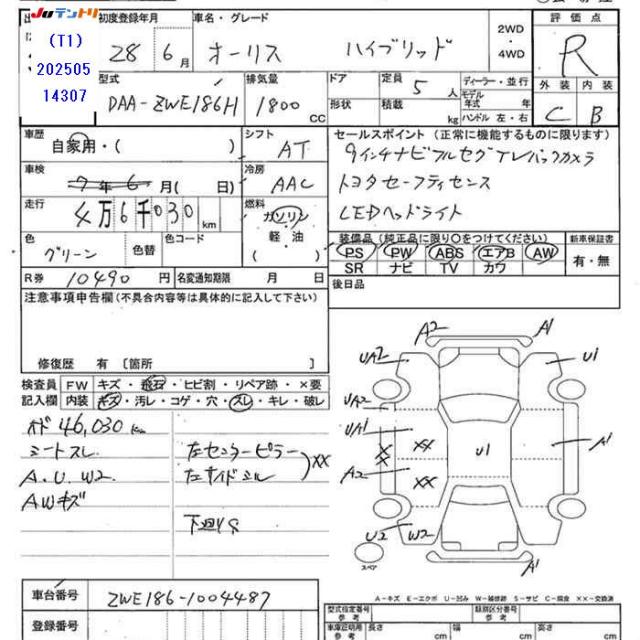 JUテントリ
(T1)
202505
14307
初度登録年月
車名・グレード
評価点
28年 6月
オーリス ハイブリッド
2WD
4WD
R
型式
DAA-ZWE186H
排気量
1800 CC
ドア
形状
定員 5人
積載 kg
ディーラー・並行
モデル年式 年
ハンドル 左・右
外装 内装
C B
車歴
自家用・( )
シフト
AT
セールスポイント (正常に機能するものに限ります)
9インチナビフルセグTVバックカメラ
トヨタセーフティセンス
LEDヘッドライト
車検
7年6月(日)
冷房
AAC
走行
4万6千030 km
燃料
ガソリン
軽・油
( )
色
グリーン
色替
色コード
装備品 (純正品に限り○をつけてください)
新車保証書
PS PW ABS エアB AW
SR ナビ TV カワ
有・無
R券 10490円
名変通知期限 月 日
後日品
注意事項申告欄(不具合内容等は具体的に記入して下さい)
修復歴 有 〔箇所 〕
検査員記入欄
FW キズ・飛石・ヒビ割・リペア跡・×要
内装 キズ・汚レ・コゲ・穴・スレ・キレ・破レ
オド46,030km
シートスレ
A.U.W2
AWキズ
左センターピラー
左サイドシル
××
下廻りS
A2 A1
UA2 U1
UA2
UA1 ×× U1 A1
A2 ××
U2 W2
A1
スペア
A-キズ E-エクボ U-凹み W-補修跡 S-サビ C-腐食 ××-交換済
車台番号
ZWE186-1004487
登録番号
型式指定番号
参考
類別区分番号
参考
車庫証明用
参考
長さ cm
幅 cm
高さ cm